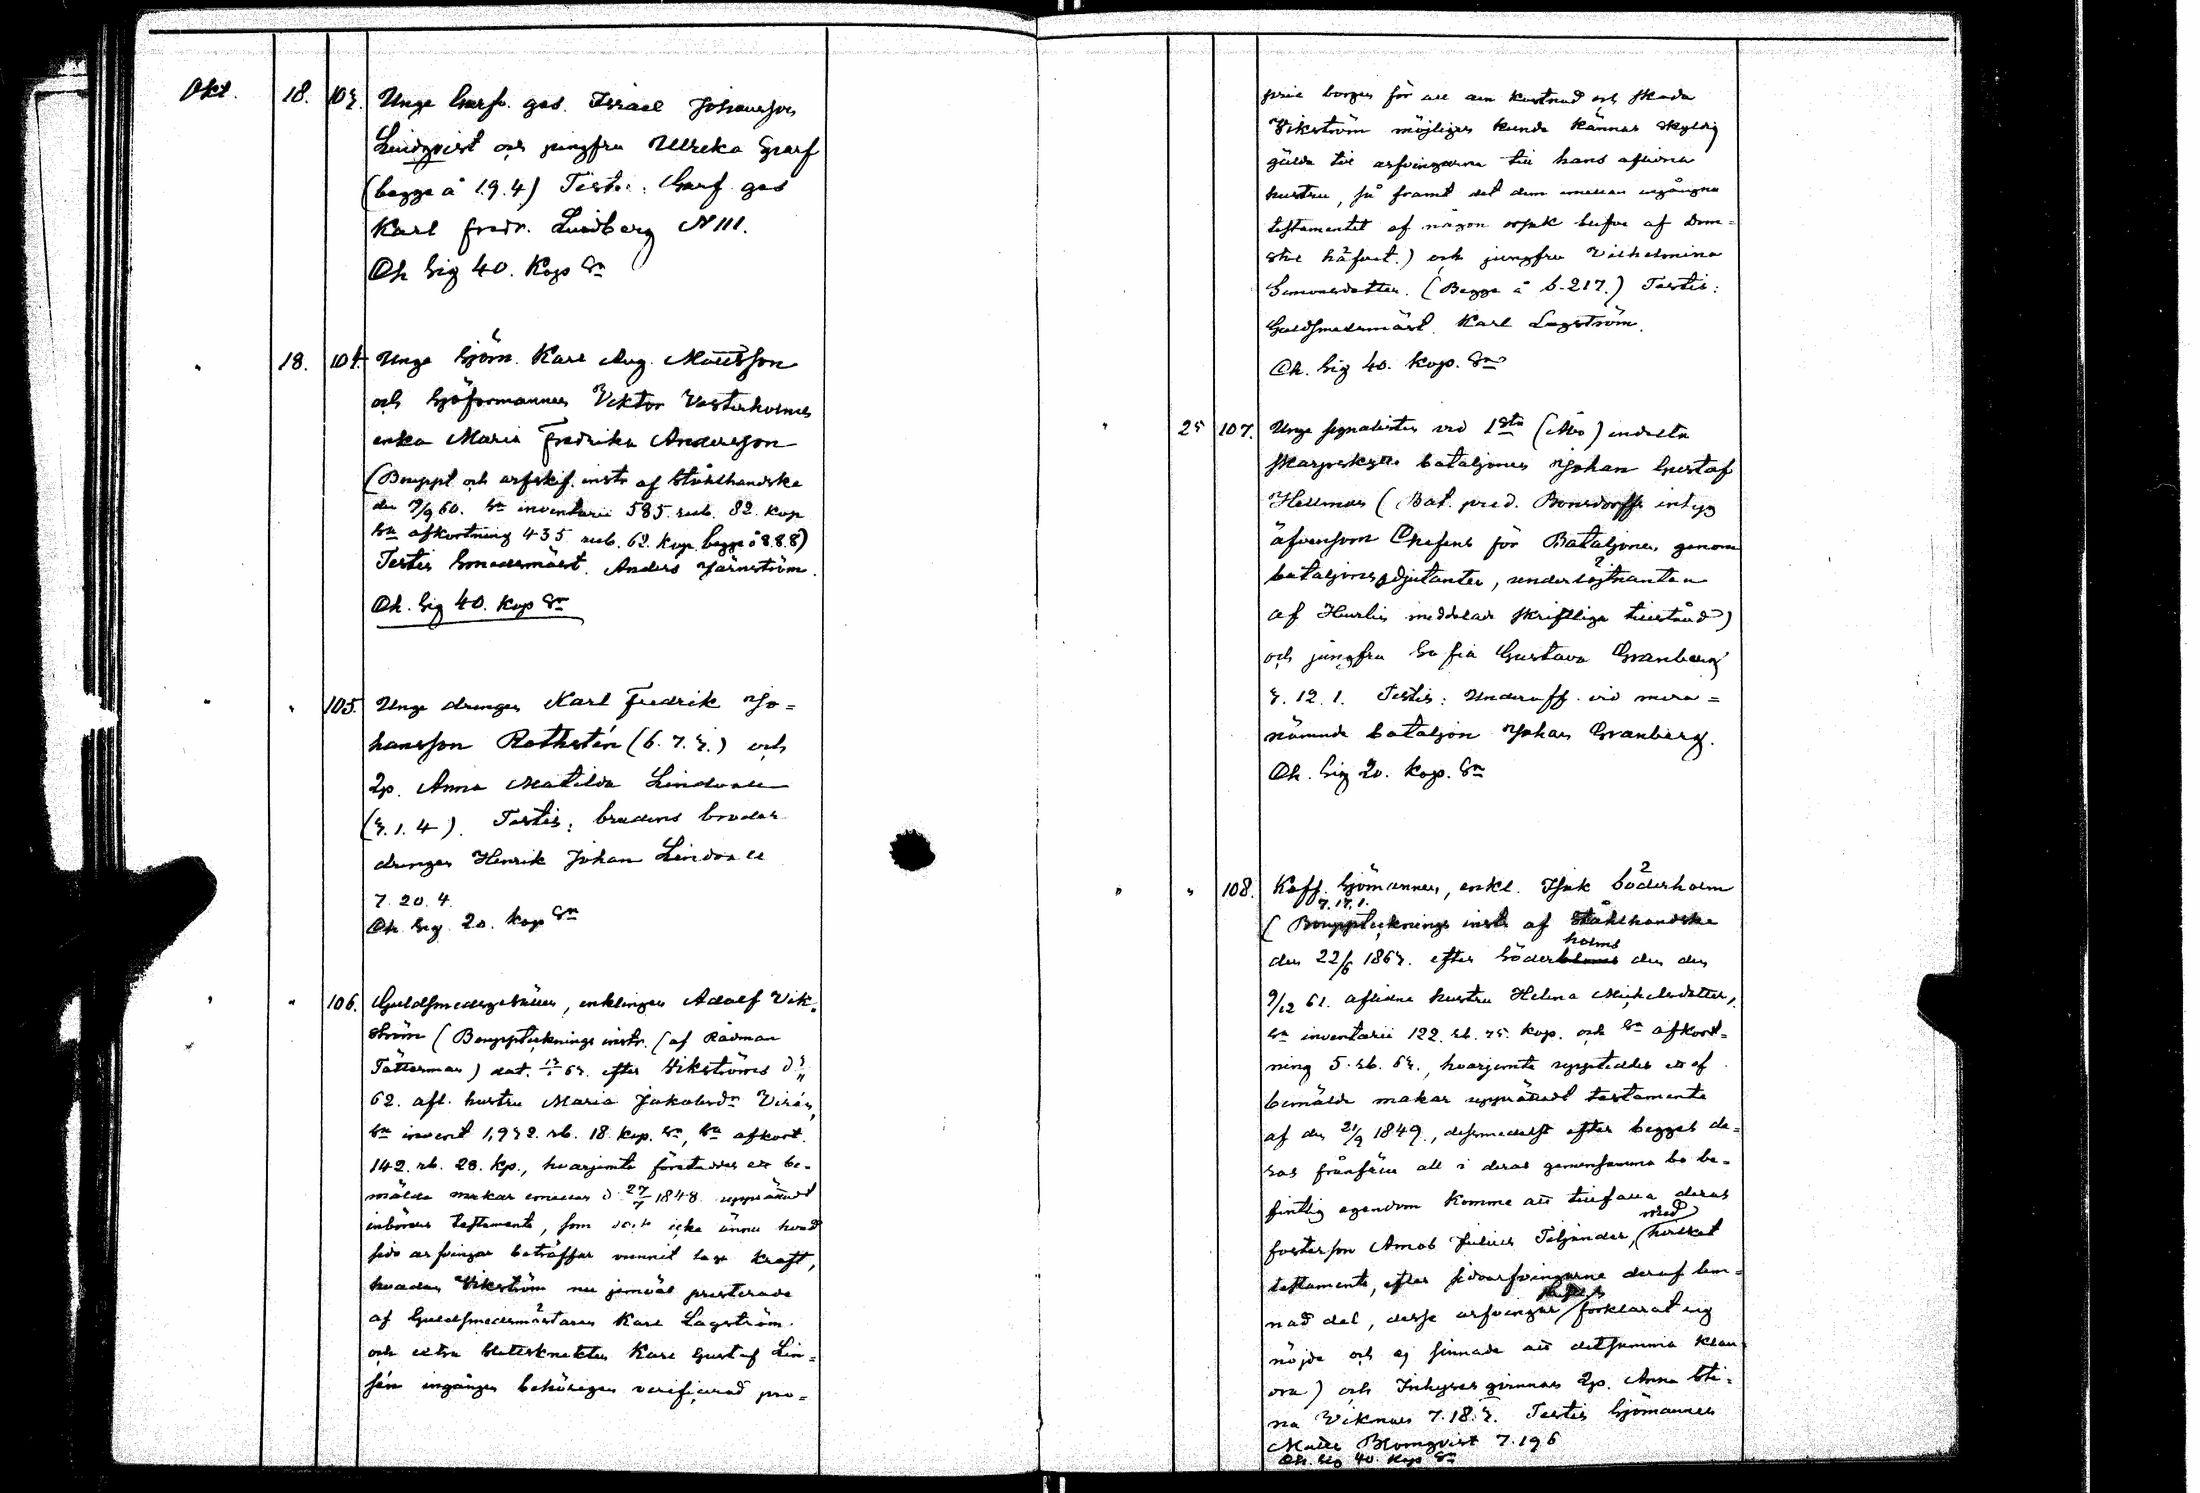 Okt. 18. 103. Unge Garf. ges. Israel Johansson
Lindqvist och jungfru Ulrika Graf
(begge å 1.9.4) Testis: Garf. ges
Karl Fredr. Lindberg N III.
Ch. Sig 40. Kop Sr
" 18. 104. Unge Sjöm. Karl Aug. Mattsson
och Sjöformannen Viktor Vesterholms
enka Maria Fredrika Andersson
(Bouppt och arfskif. instr af Stålhandske
den 60. Sa inventarii 585. rub. 82. kop
Sa afkortning 435 rub. 62. kop. begge å 8.8.8)
Testis Smedsmäst. Anders Järnström.
Ch. Sig 40. Kop Sr
" " 105. Unge drengen Karl Fredrik Jo=
hansson Rothstén (6.7.3.) och
2p. Anna Matilda Lindvall
(3.1.4). Testis: brudens broder
drengen Henrik Johan Lindvall
7.20.4.
Ch. Sig. 20. kop Sr
" " 106. Guldsmedsgesällen, enklingen Adolf Vik=
ström (Bouppteknings instr. (af Rådman
Tätterman) dat. 63. efter Vikströms
62. afl. hustru Maria Jakobsdr Virén,
Sa invent 1,932. rb. 18. kop. Sr, Sa afkort.
142. rb. 28. kp., hvarjemte företeddes ett be=
mälde makar emellan d. 27/7 1848 upprättadt
inbördes testamente, som dock icke ännu hvad
sido arfvingar beträffar vunnit laga kraft,
hvadan Vikström nu jemväl presterade
af Guldsmedsmästaren Karl Lagström
och extra Karl Gustaf Lin=
sén ingången behörigen verifierad pro=
prie borgen för all den kostnad och skada
Vikström möjligen kunde kännas skyldig
gälda till arfvingarna till hans aflidna
hustru, så framt det dem emellan ingångna
testamentet af någon orsak blefve af Dom=
stol häfvet.) och jungfru Vilhelmina
Simonsdotter. (Begge å 6.217.) Testis:
Guldsmedsmäst. Karl Lagström.
Ch. Sig 40. kop. Sr
" 25 107. Unge signalisten vid 1sta (Åbo) indelta
skarpskytte bataljonen Johan Gustaf
Hellman (Bat. pred. Bonsdorffs intyg
äfvensom Chefens för Bataljonen genom
bataljonsadjutanten, underlöjtnanten
af Heurlin meddelade skriftliga tillstånd)
och jungfru Sofia Gustava Granberg
3.12.1. Testis: Underoff. vid mera=
nämnde bataljon Johan Granberg.
Ch. Sig 20. Kop. Sr
" " 108. Koff. Sjömannen, enkl. Isak Söderholm
7.17.1.
(Bouppteknings instr af Stålhandske
den 22/6 1863. efter Söderholms den
9/12 61. aflidne hustru Helena Mickelsdotter,
Sa inventarii 122. rb. 75. kop. och Sa afkort=
ning 5. rb. 63., hvarjemte uppteddes ett af
bemälde makar upprättadt testamente
af den 21/9 1849., desmedelst efter begges de=
ras frånfälle all i deras gemensamma bo be=
fintlig egendom komme att tillfalla deras
fosterson Amos Julius Tiljander, (med hvilket
testamente, efter sidoarfvingarne deraf lem=
nad del, desse arfvingar förklarat sig
nöjde och ej sinnade att detsamma klan=
dra) och Inhyses qvinnan 2p. Anna Sti=
na Vikman 7.18.3. Testis Sjömannen
Matts Blomqvist 7.196
Ch. Sig 40. Kop Sr